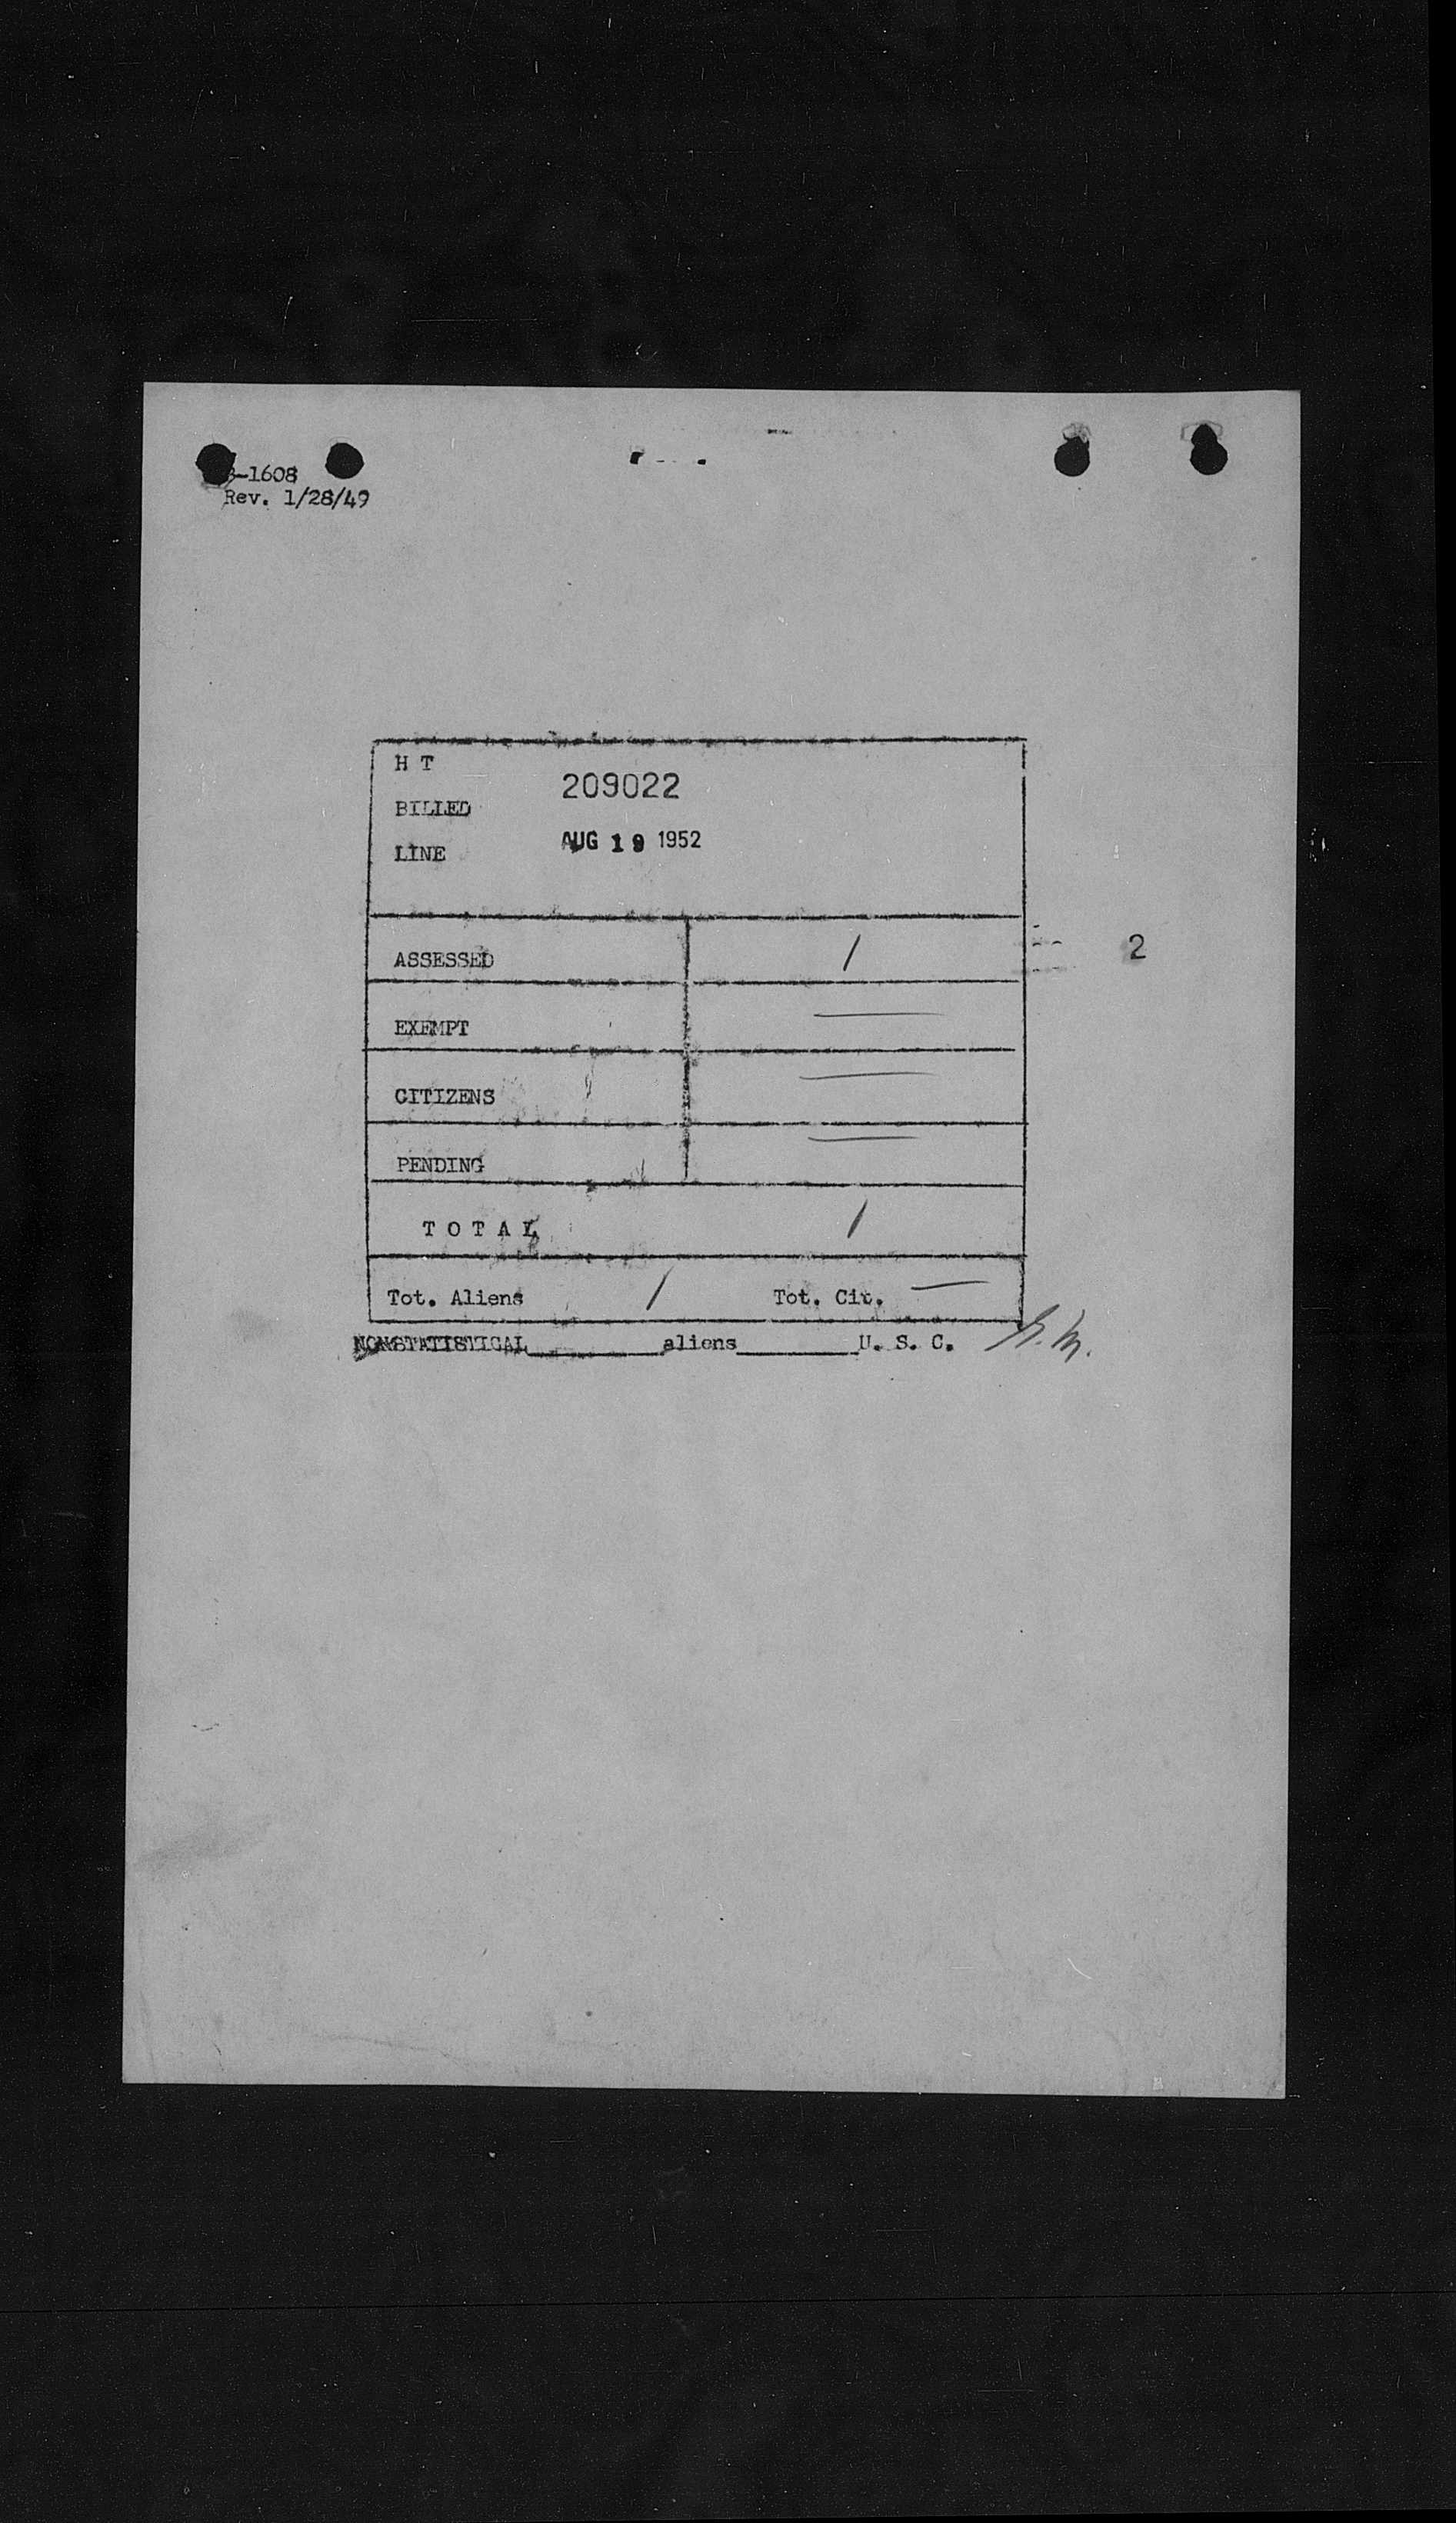 -1608
Rev. 1/28/49
H T
209022
BILLED
AUG 19 1952
LINE
ASSESSED /
2
EXEMPT —
CITIZENS —
PENDING —
T O T A L /
Tot. Aliens / Tot. Cit. —
NONSTATISTICAL________aliens________U. S. C.